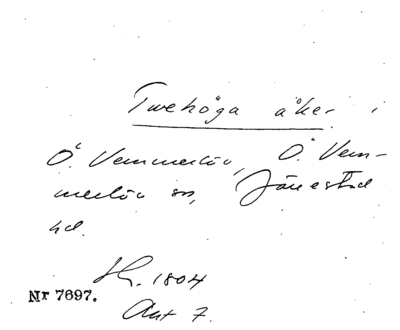 Twehöga åker i
Ö. Vemmerlöv, Ö. Vem-
merlöv sn, Järrestad
hd.
Sk. 1804
Nr 7697.
Akt 7.